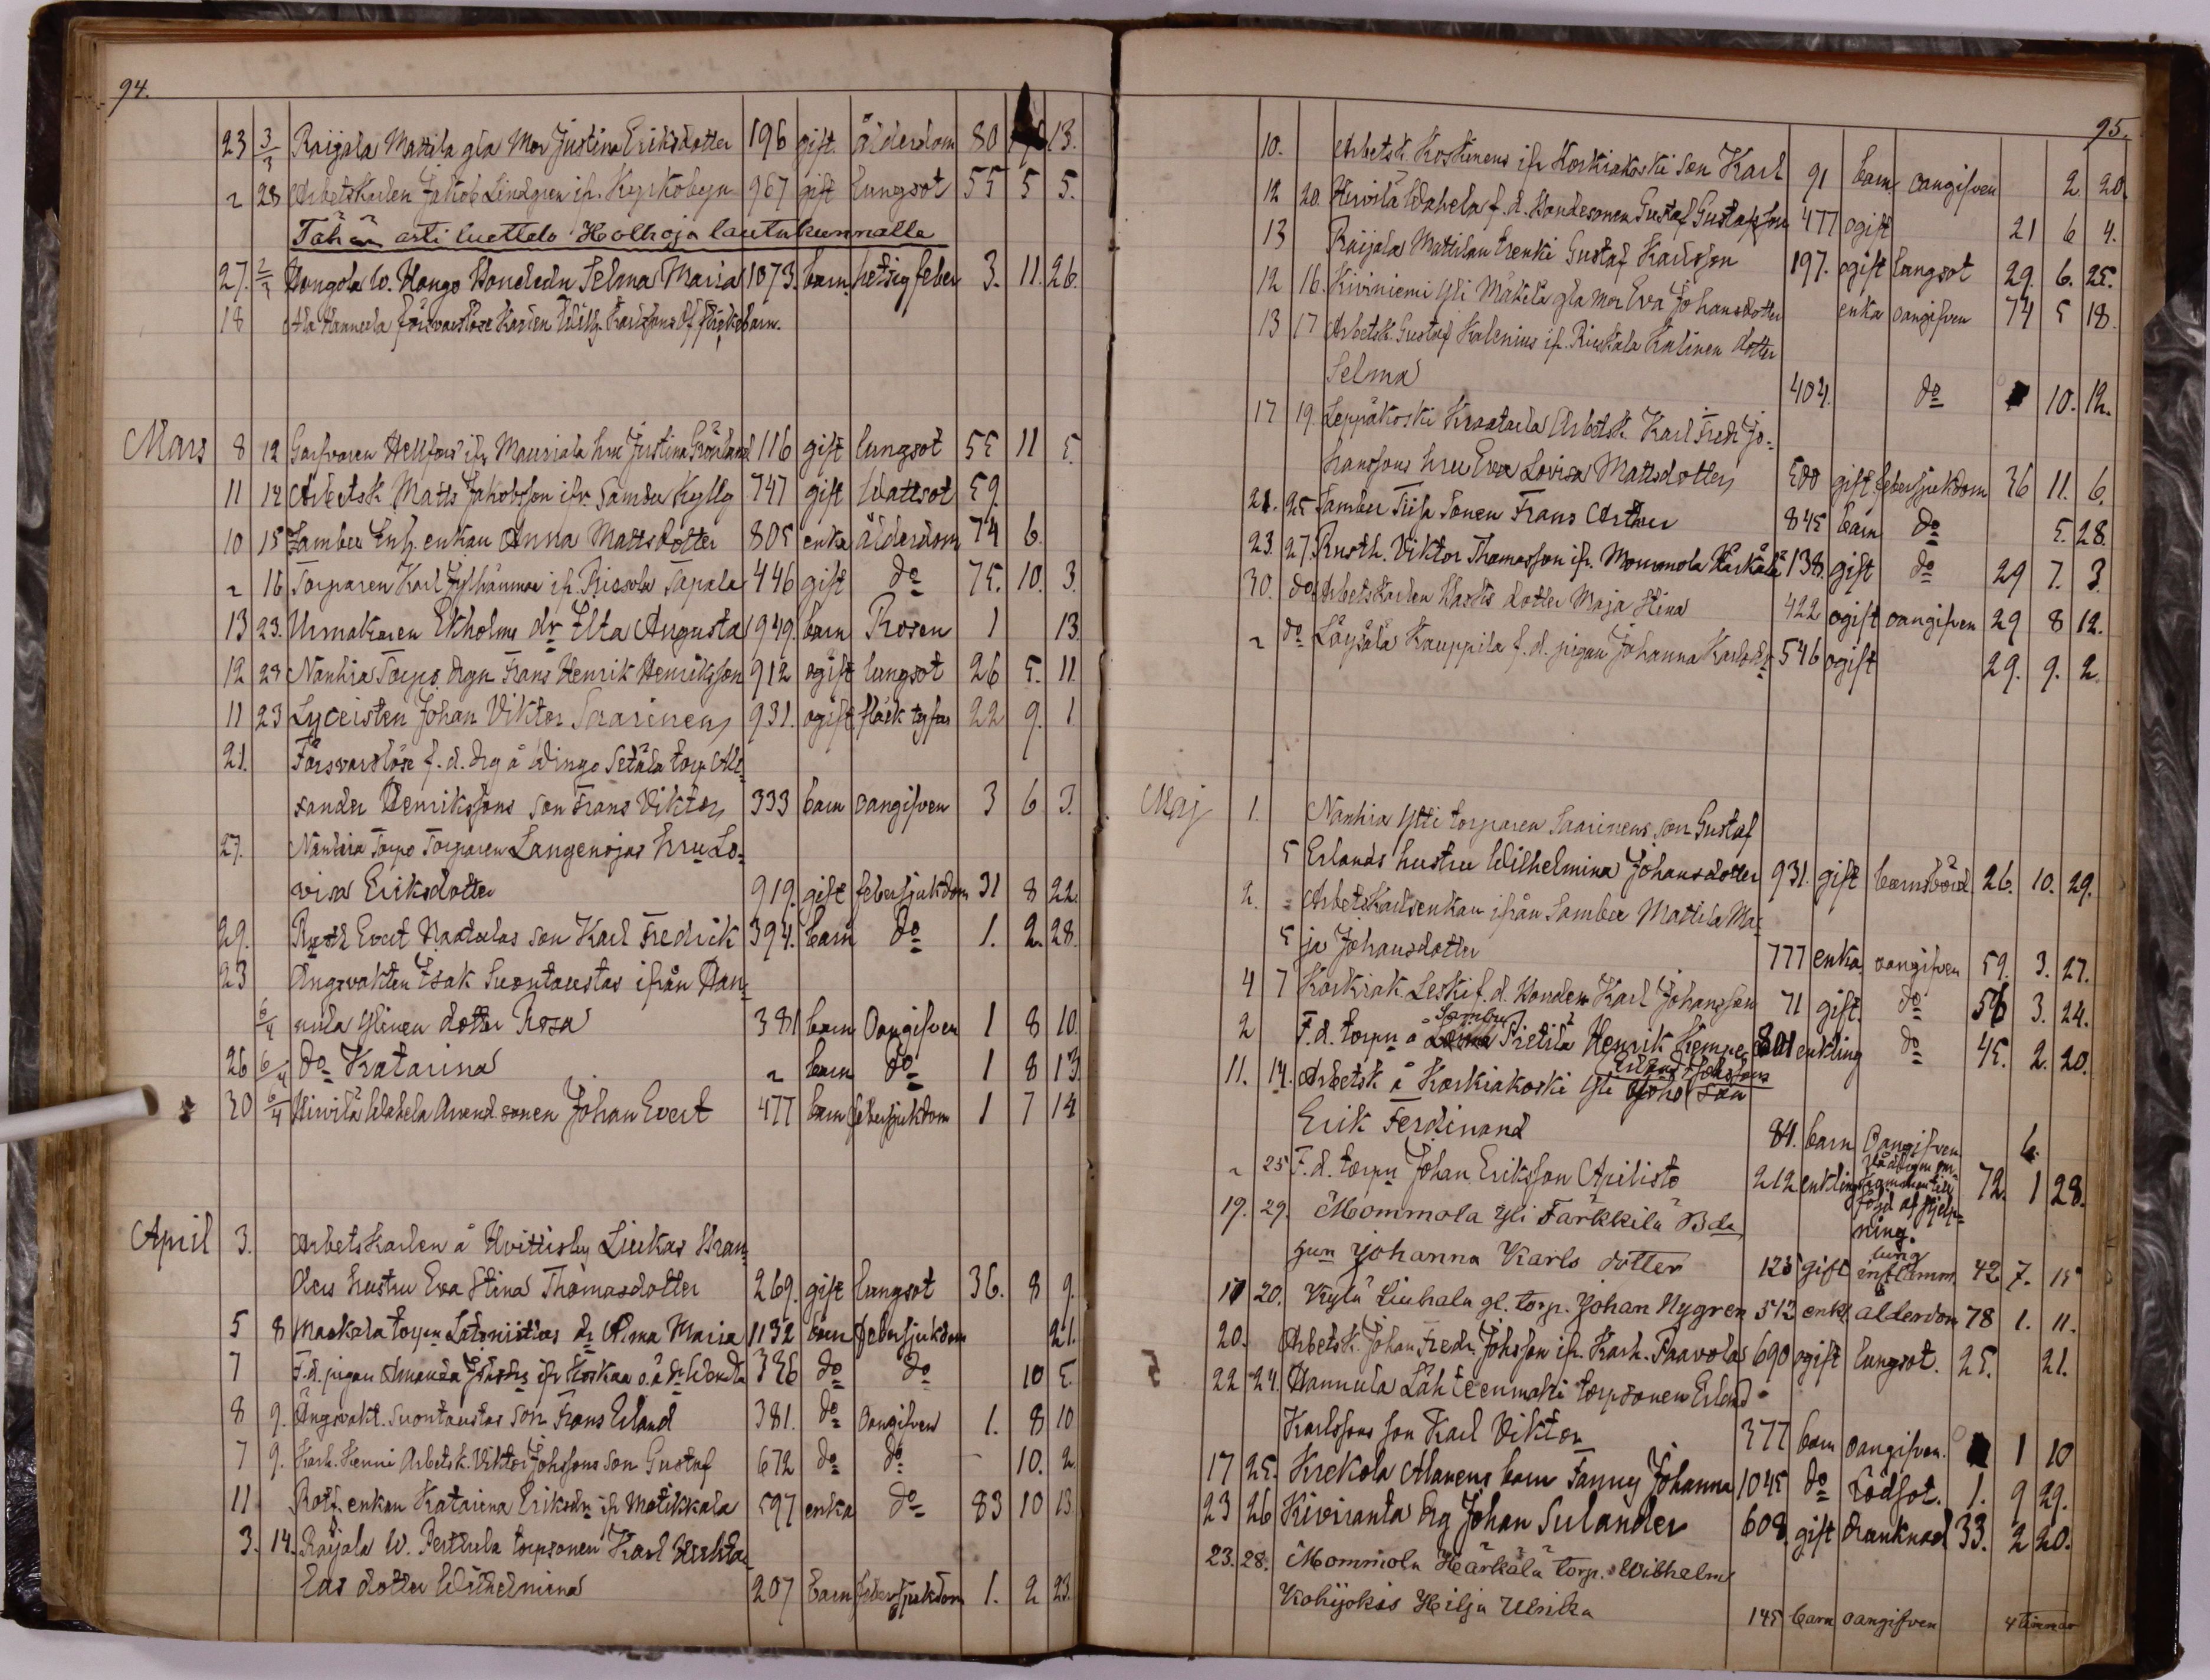 94.
23 3/3 Raijala Mattila gla Mor Justina Eriksdotter 196 gift ålderdom 80 13.
" 28 Arbetskarlen Jakob Lindgren ifr. Kyrkobyn 967 gift lungsot 55 5 5.
Tähän asti luettelo Holhoja lautakunnalle
27. 2/3 Hongola W. Hongo Hondedn Selma Maria 1073. barn hetsig feber 3. 11. 26.
18 försvarslöse Karlen Wilh. Karlssons
Mars 8 12 Garfvaren Hellfors ifr Mauriala hru Justina Grönlund 116 gift lungsot 55 11 5.
11 12 Arbetsk. Matts Jakobsson ifr. Sambu Kylly 747 gift Wattsot 59.
10 15 Sambu Inh. enkan Anna Mattsdotter 805 enka ålderdom 74 6.
" 16 Torparen Karl ifr. Tapala 446 gift do 75. 10. 3.
13 23. Urmakaren Ekholms dr Elta Augusta 949. barn Rosen 1 13.
12 23 Nanhia Torpo drgn Frans Henrik Henriksson 912 ogift lungsot 26 5. 11.
11 23 Lyceisten Johan Viktor Saarinen 931. ogift fläck tyfus 22 9. 1.
21. Försvarslöse f. d. drg å Wingo Setälä torp Ale-
xander Henrikssons son Frans Viktor 333 barn oangifven 3 6 3.
27. Nanhia Torpo Torparen Langenojas hru Lo-
visa Eriksdotter 919. gift febersjukdom 31 8 22.
29. Evert son Karl Fredrik 394. barn do 1. 2. 28.
23 Ängsvakten Isak Suontaustas ifrån Han-
6/4 nula Ylinen dotter Rosa 381 barn Oangifven 1 8 10.
26 6/4 do Katarina " barn do 1 8 13.
30 6/4 Hirvilä Wahela Arend. sonen Johan Evert 477 barn febersjukdom 1 7 14
April 3. Arbetskarlen å Hvittisby Liukas
hustru Eva Stina Thomasdotter 269. gift lungsot 36. 8 9.
5 8 Maakala torpn dr Alma Maria 1132 barn febersjukdom 21.
7 F. d. pigan Amanda ifr 336 do do 10 5.
8 9. Ängsvakt. Suontaustas son Frans Erland 381. do oangifven 1. 8 10
7 9. Kark. Kenni Arbetsk. Viktor Johssons son Gustaf 672 do do - 10. 2.
11 Rotf. enkan Katarina Eriksdn ifr Motikkala 597 enka do 83 10 13.
3. 14. Raijala W. Perttula torpsonen Karl
las dotter Wilhelmina 207 barn febersjukdom 1. 2 23.
95.
10. Arbetsk. Koskinens ifr Korkiakoski son Karl 91 barn oangifven 2. 20.
12 20. Hirvilä Wahela f. d. Hondesonen Gustaf Gustafsson 477 ogift 21 6 4.
13 Raijala Mattilan trenki Gustaf Karlsson 197. ogift lungsot 29. 6. 25.
12 16. Kiviniemi Yli Mäkelä gla mor Eva Johansdotter enka oangifven 74 5 18.
13 17 Arbetsk. Gustaf Kalenius ifr. Riuskala Kalinen dotter
Selma 404. do 10. 12.
17 19. Leppäkoski Arbetsk. Karl Fredr. Jo-
hanssons hru Eva Lovisa Mattsdotter 500 gift febersjukdom 36 11. 6.
21. 25 Sambu Sonen Frans Arthur 845 barn do 5. 28.
23. 27. Rusth. Viktor Thomasson ifr. Mommola Härkälä 138. gift do 29 7. 3.
30. do Arbetskarlen dotter Maja Stina 422 ogift oangifven 29 8 12.
" do Löysälä Kauppila f. d. pigan Johanna Karlsdr 546 ogift 29. 9. 2.
Maj 1. Nanhia Ytti torparen Saarinens son Gustaf
5 Erlands hustru Wilhelmina Johansdotter 931. gift barnsbörd 26. 10. 29.
2. Arbetskarlsenkan ifrån Sambu Mattila Ma-
5 ja Johansdotter 777 enka oangifven 59. 3. 27.
4 7 Korkiak. Leski f. d. Honden Karl Johansson 71 gift. do 56 3. 24.
2 F. d. torpn å Sambu Pietilä Henrik Kempe 801 enkling do 45. 2. 20.
11. 14. Arbetsk å Korkiakoski Yli Erland Johssons son
Erik Ferdinand 84. barn Oangifven 6.
" 25 F. d. torpn Johan Eriksson Apilisto 212 enkling följd af stjelp-
ning. 72. 1 28.
19. 29. Mommola Yli Tarkkila Bda
gun Johanna Karls dotter 123 gift lung inflamm. 42 7. 15
17 20. Kylä Liuhala gl. torp. Johan Nygren 512 enkl alderdom 78 1. 11.
20. Arbetsk. Johan Fredr. Johsson ifr. Kark. Paavola 690 ogift lungsot. 25. 21.
22 24. Hannula Lähteenmäki torpsonen Erland
Karlssons son Karl Viktor 377 barn oangifven. 1 10
17 25. Krekola Alanens barn Fanny Johanna 1045 do Rödsot. 1. 9 29.
23 26 Kiviranta drg Johan Sulander 608. gift drunknad 33. 2 20.
23. 28. Mommola Härkälä torp. Wilhelm
Kohijokis Hilja Ulrika 145 barn oangifven 4 timmar